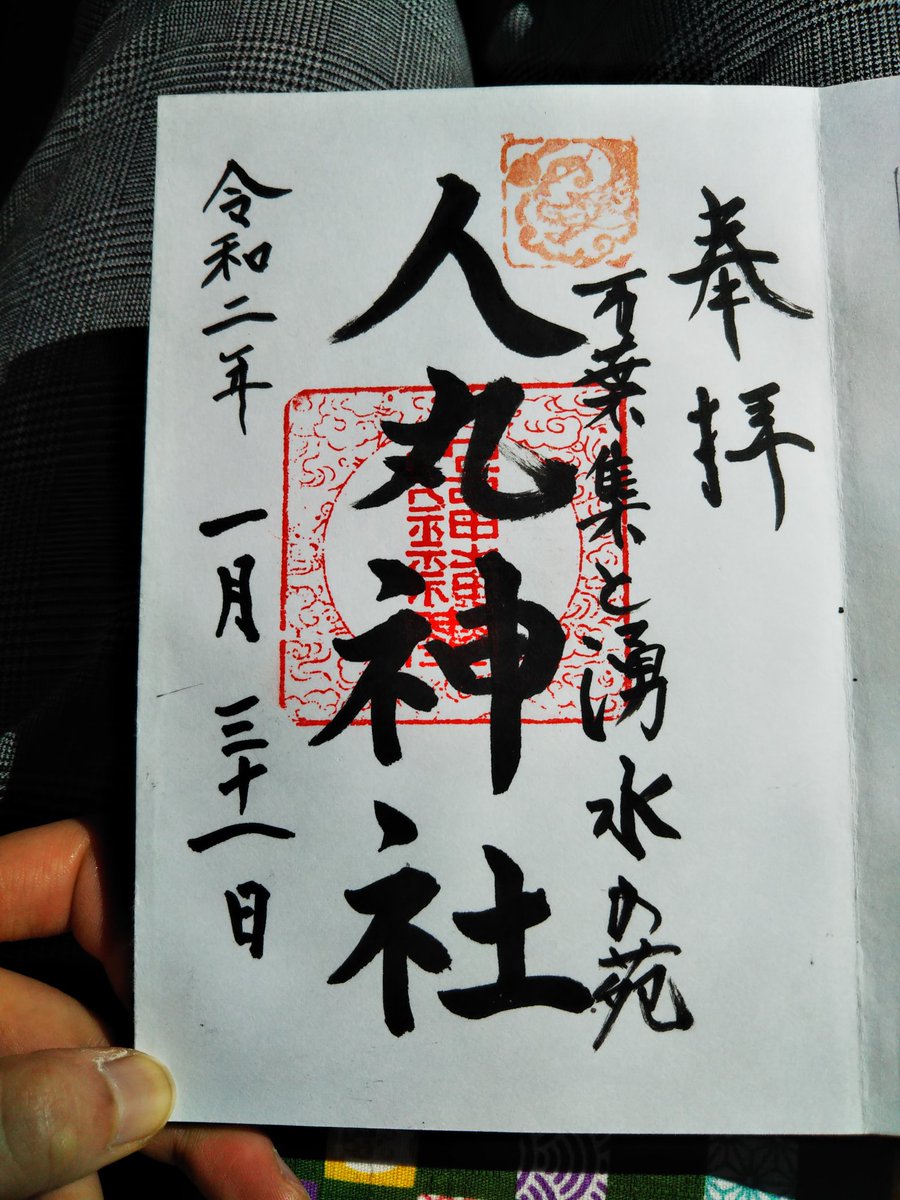 奉拝
万葉集と湧水の苑
人丸神社
令和二年 一月 三十一日